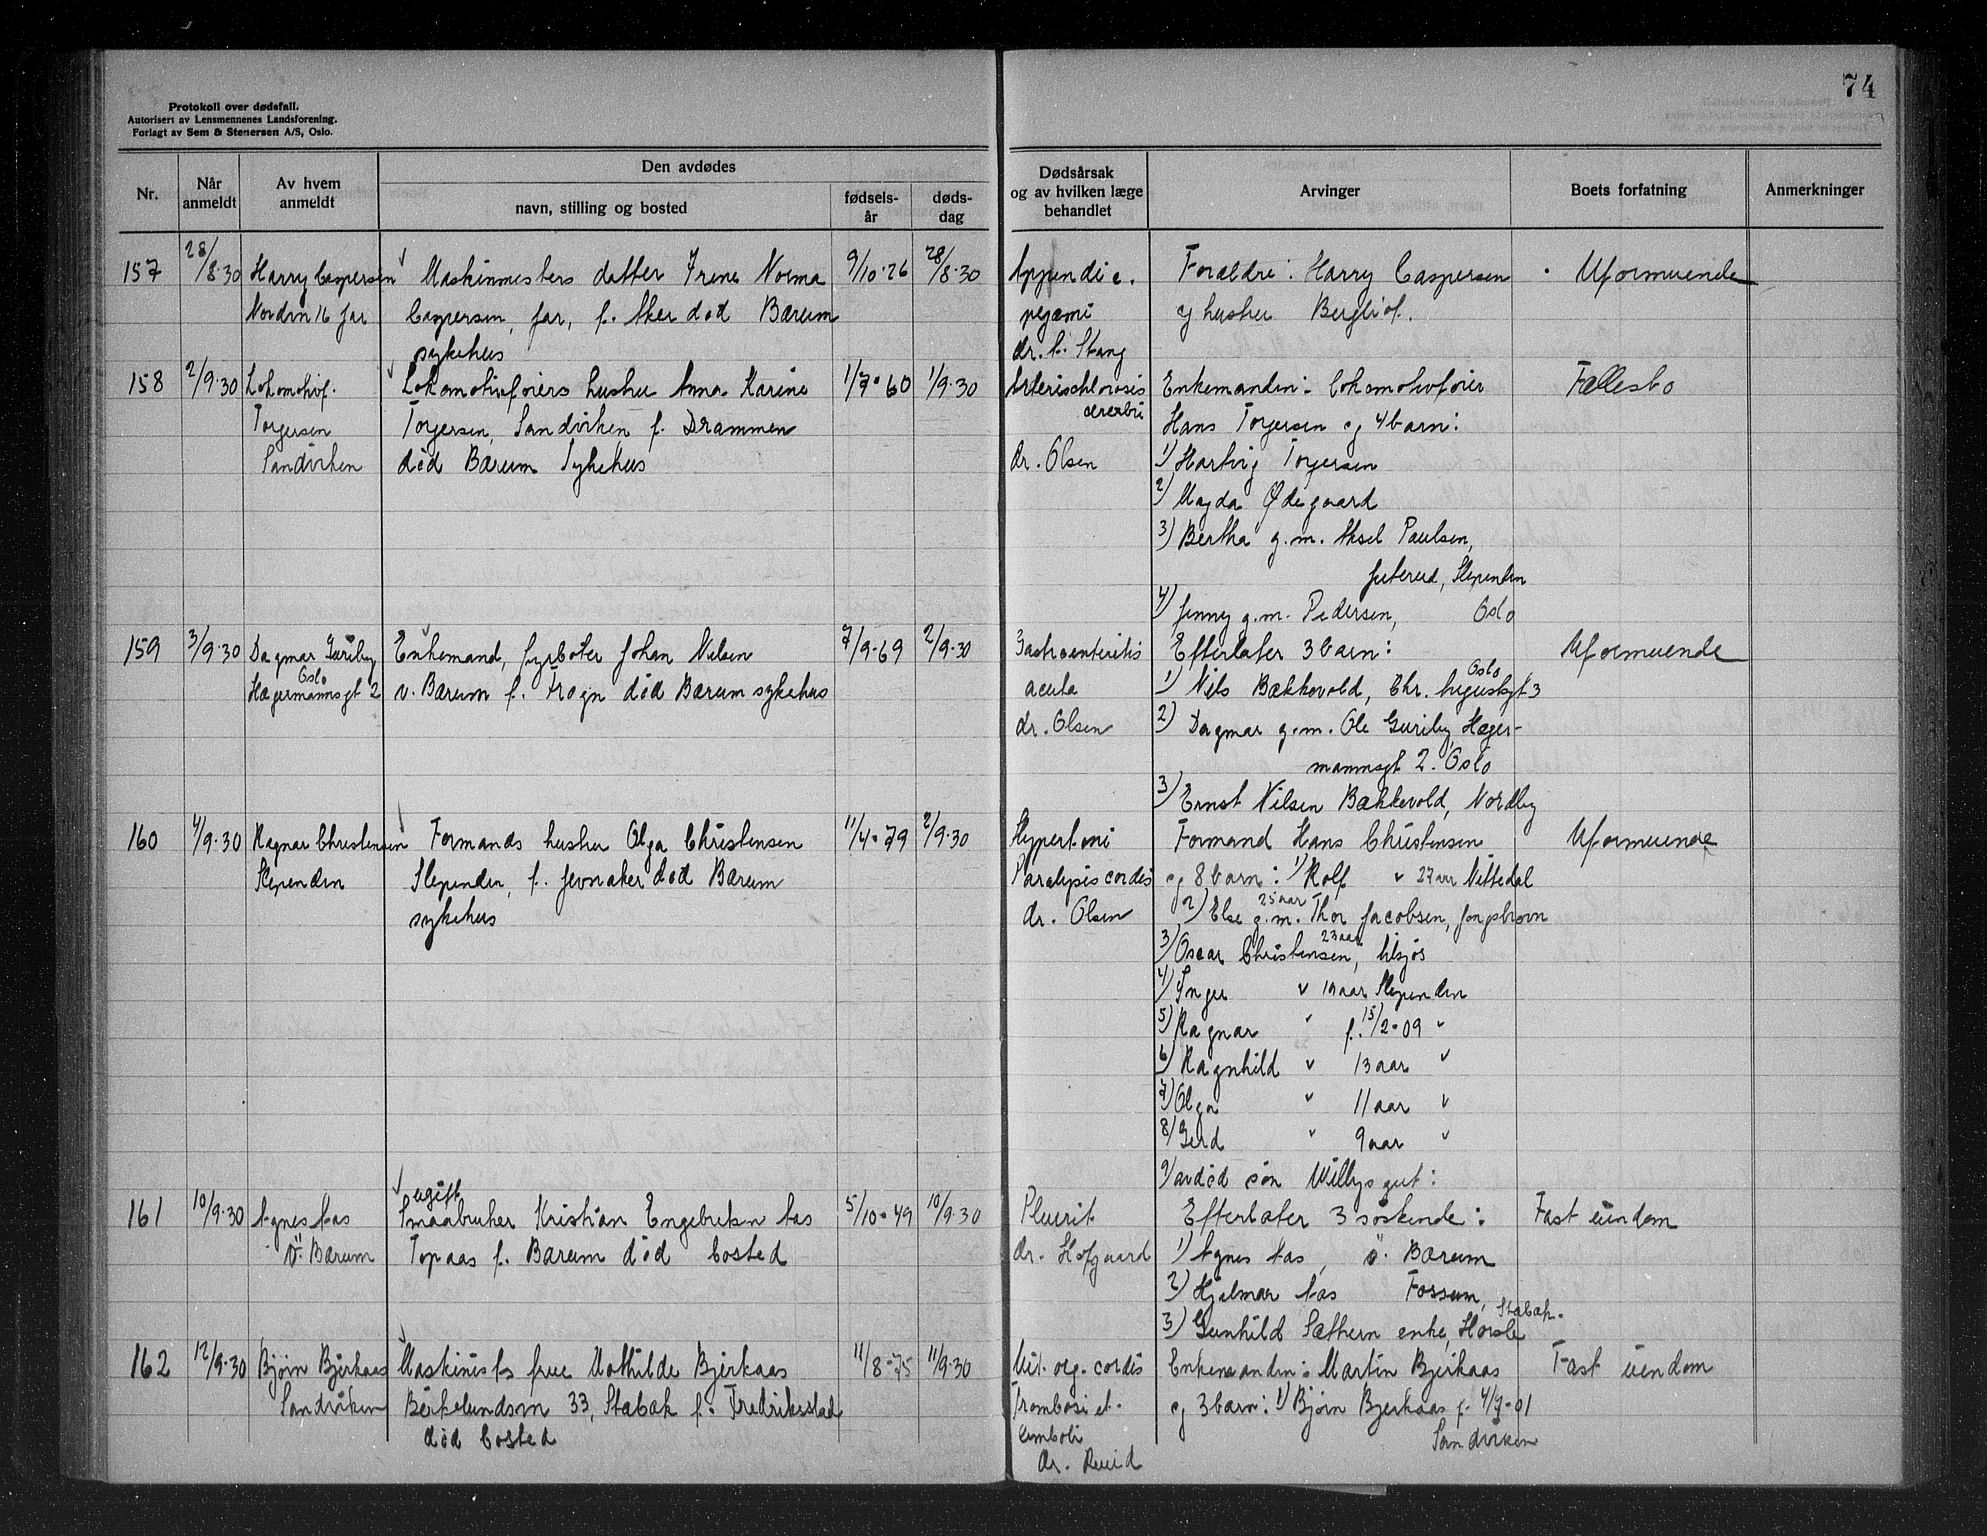 74
Protokoll over dødsfall.
Autorisert av Lensmennenes Landsforening.
Forlagt av Sem & Stenersen A/S, Oslo.
Nr.
Når anmeldt
Av hvem anmeldt
Den avdødes
navn, stilling og bosted
fødsels-år
døds-dag
Dødsårsak og av hvilken læge behandlet
Arvinger
Boets forfatning
Anmerkninger
157 28/8.30 Harry Caspersen Maskinmesters datter Irene Norma 9/10.26 28/8.30 Appendic. Forældre: Harry Caspersen Uformuende
Caspersen, Jar, f. Aker død Bærum
og hustru Bergliot.
sykehus
dr. A. Stang
158 2/9.30 Lokomotivf. Lokomotivførers hustru Anna Karine 1/7.60 1/9.30 Arterischlerosis Enkemanden: Lokomotivfører Fællesbo
cerebri
Torgersen Torgersen, Sandviken f. Drammen Hans Torgersen og 4 barn:
Sandviken død Bærum Sykehus dr. Olsen 1) Hartvig Torgersen
2) Magda Ødegaard
3) Bertha g.m. Aksel Paulsen,
Slependen
4) Jenny g.m. Pedersen, Oslo
159 3/9.30 Dagmar Guriby Enkemand, fyrbøter Johan Nilsen 7/9.69 2/9.30 Gastroenteritis Efterlater 3 barn: Uformuende
Oslo
Hægermannsgt 2 v. Bærum f. Frogn død Bærum sykehus acuta 1) Nils Bækkevold, Chr. Augustsgt 3
Oslo
dr. Olsen 2) Dagmar g.m. Ole Guriby, Hæger-
mannsgt 2. Oslo
3) Ernst Nilsen Bækkevold, Nordby
160 4/9.30 Ragnar Christensen Formands hustru Olga Christensen 11/4.79 2/9.30 Hypertoni Formand Hans Christensen Uformuende
Slependen Slependen, f. Jevnaker død Bærum Paralysis cordis og 8 barn: 1) Rolf " 27 aar Nittedal
sykehus dr. Olsen 2) Else g.m. Thor Jacobsen, Jongsbrovn
25 aar
3) Oscar Christensen, Ulsjøs
23 aar
4) Inger " 19 aar Slependen
5) Ragnar " f. 15/2.09 "
6) Ragnhild " 13 aar "
7) Olga " 11 aar "
8) Gerd " 9 aar "
9) avdød søn Willys gut:
ugift
161 10/9.30 Agnes Aas Smaabruker Kristian Engebretsen Aas 5/10.49 10/9.30 Pluerit Efterlater 3 søskende: Fast eiendom
Ö. Bærum Topaas f. Bærum død bosted dr. Hofgaard 1) Agnes Aas, ö. Bærum
2) Hjalmar Aas Fossum,
Stabæk.
3) Gunhild Sæthern enke, Horsle
162 12/9.30 Bjørn Bjerkaas Maskinists frue Mathilde Bjerkaas 11/8.75 11/9.30 Vit. org. cordis Enkemanden: Martin Bjerkaas Fast eiendom
Sandviken Birkelundsvn 33, Stabæk f. Fredrikstad Trombosi et. og 3 barn: 1) Bjørn Bjerkaas f. 4/9.01
død bosted emboli Sandviken
dr. Ruud